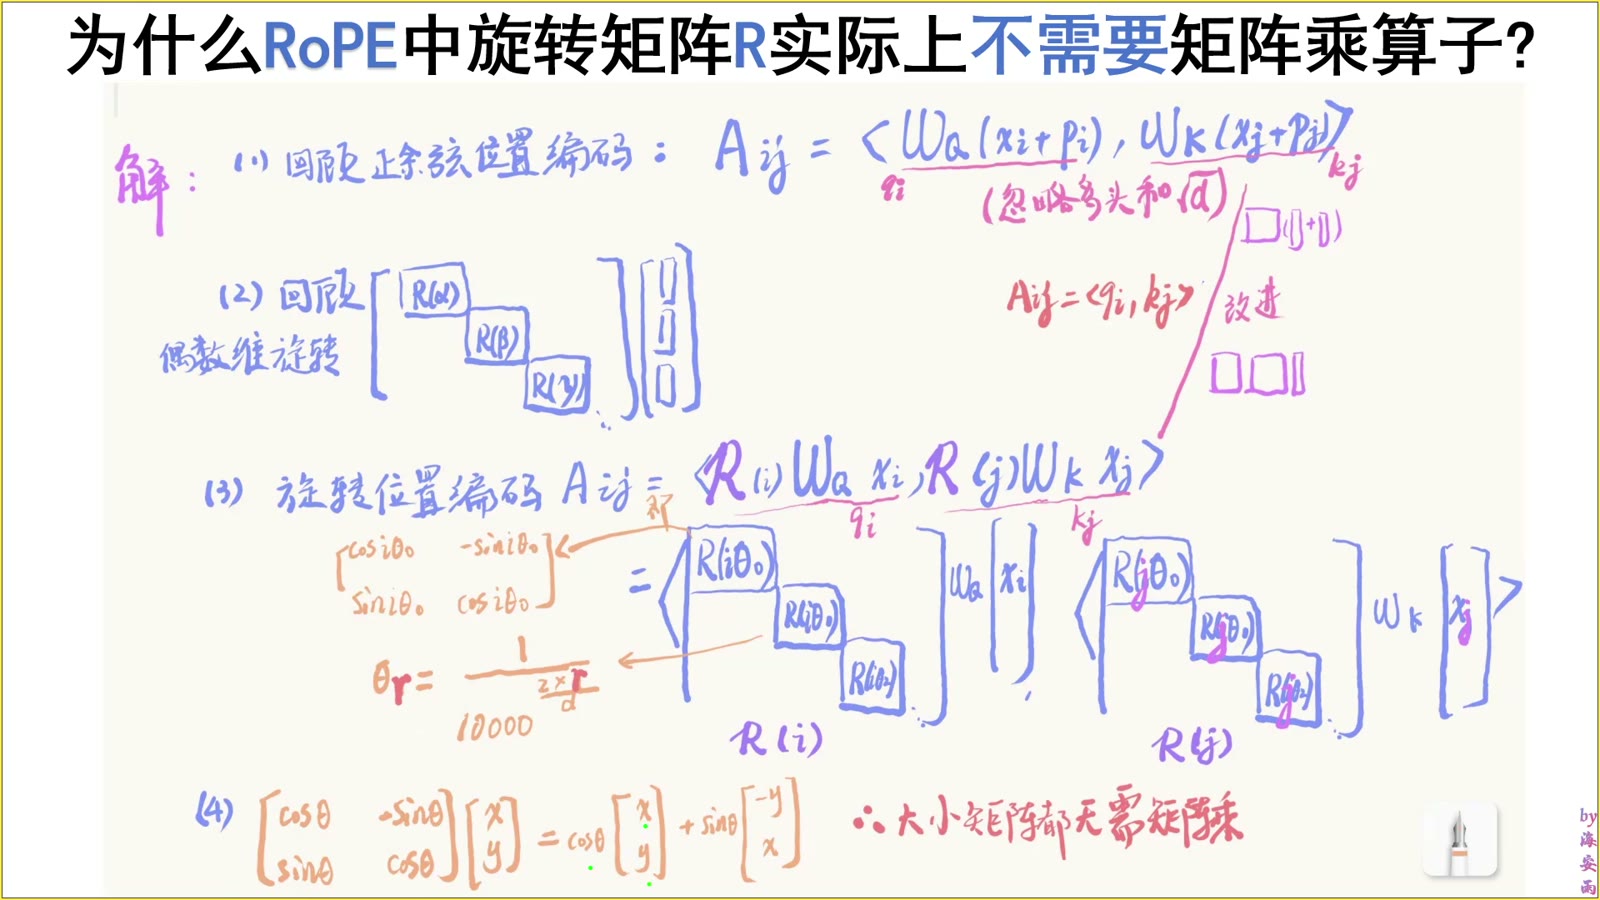 为什么RoPE中旋转矩阵R实际上不需要矩阵乘算子?
解:
(1) 回顾正余弦位置编码: Aij = <WQ(xi+pi), WK(xj+pj)>
qi
kj
(忽略多头和√d)
□(▯+▯)
Aij = <qi, kj>
改进
□□▯
(2) 回顾
偶数维旋转
R(α)
R(β)
R(γ)
(3) 旋转位置编码 Aij = <R(i)WQ xi, R(j)WK xj>
qi
kj
[cosiθ₀ -siniθ₀
siniθ₀ cosiθ₀]
= < R(iθ₀) WQ [xi], R(jθ₀) WK [xj] >
R(iθ₁) R(jθ₁)
R(iθ₂) R(jθ₂)
θr = 1 / 10000^(2×r/d)
R(i)
R(j)
(4) [cosθ -sinθ; sinθ cosθ][x; y] = cosθ[x; y] + sinθ[-y; x] ∴大小矩阵都无需矩阵乘
by
海
安
雨